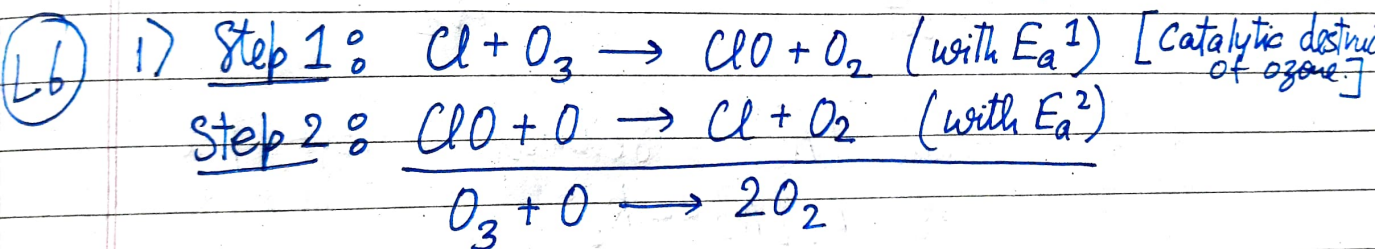 L6 1) Step 1: Cl + O₃ → ClO + O₂ (with Eₐ¹) [Catalytic
of ozone.]
Step 2: ClO + O → Cl + O₂ (with Eₐ²)
O₃ + O → 2O₂